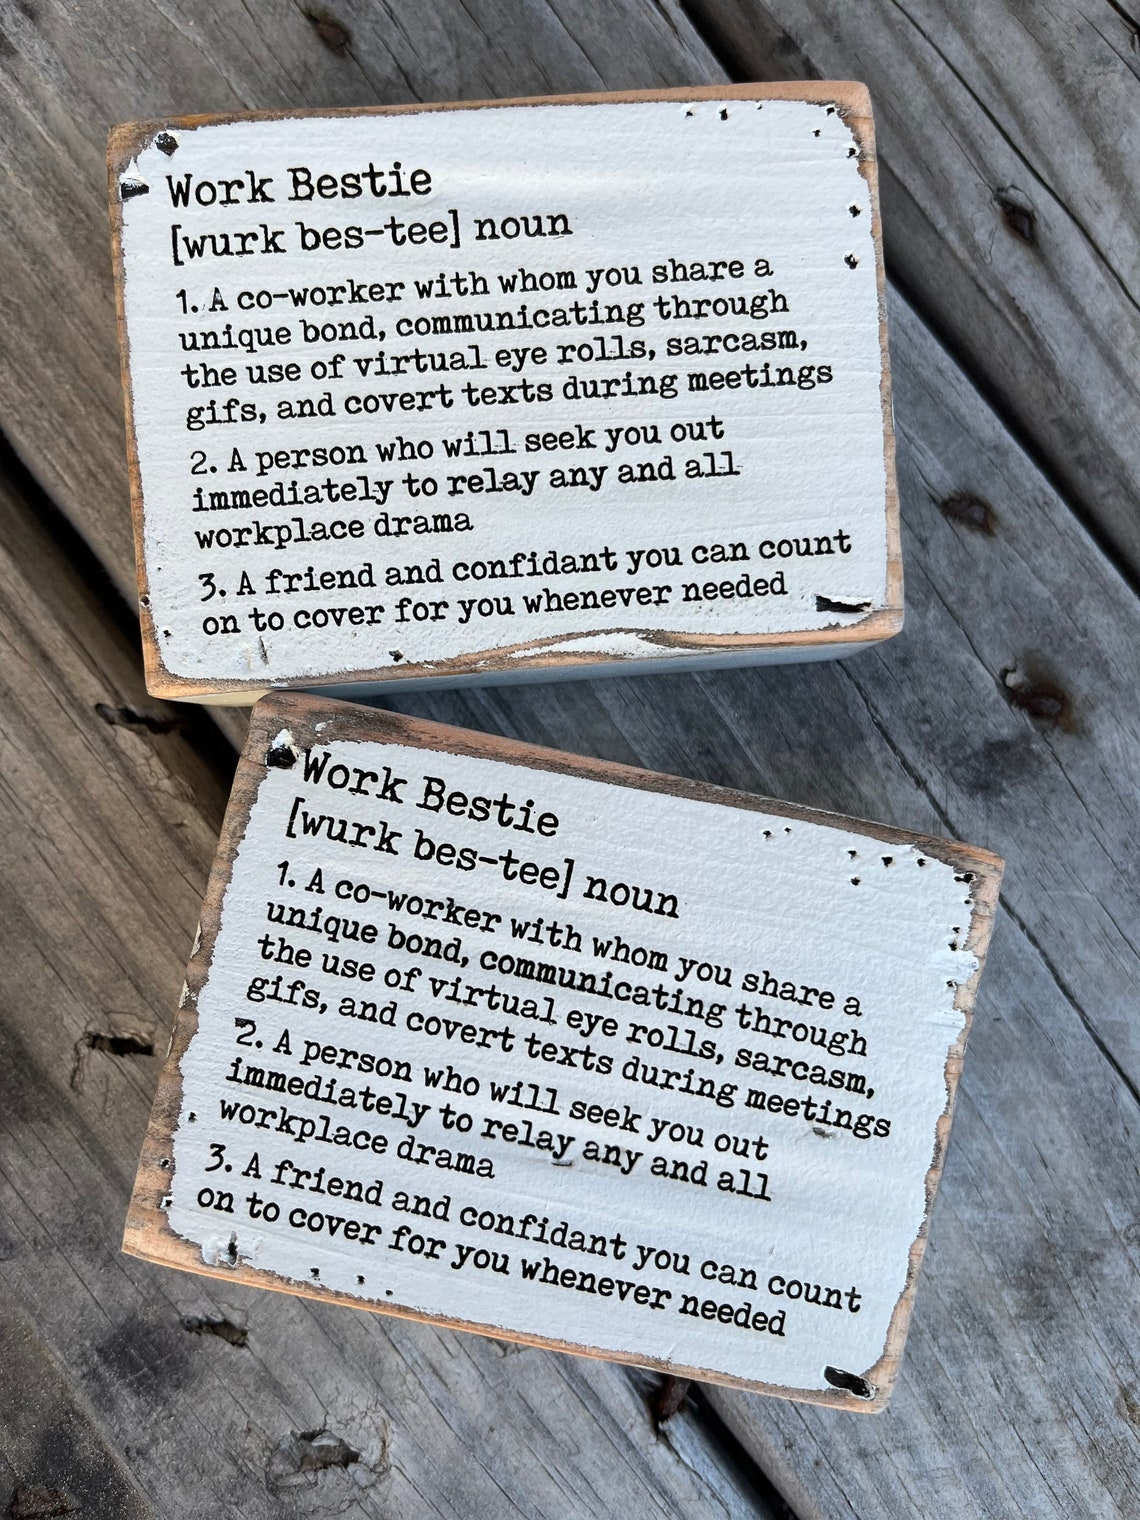 Work Bestie
[wurk bes-tee] noun
1. A co-worker with whom you share a
unique bond, communicating through
the use of virtual eye rolls, sarcasm,
gifs, and covert texts during meetings
2. A person who will seek you out
immediately to relay any and all
workplace drama
3. A friend and confidant you can count
on to cover for you whenever needed
Work Bestie
[wurk bes-tee] noun
1. A co-worker with whom you share a
unique bond, communicating through
the use of virtual eye rolls, sarcasm,
gifs, and covert texts during meetings
2. A person who will seek you out
immediately to relay any and all
workplace drama
3. A friend and confidant you can count
on to cover for you whenever needed